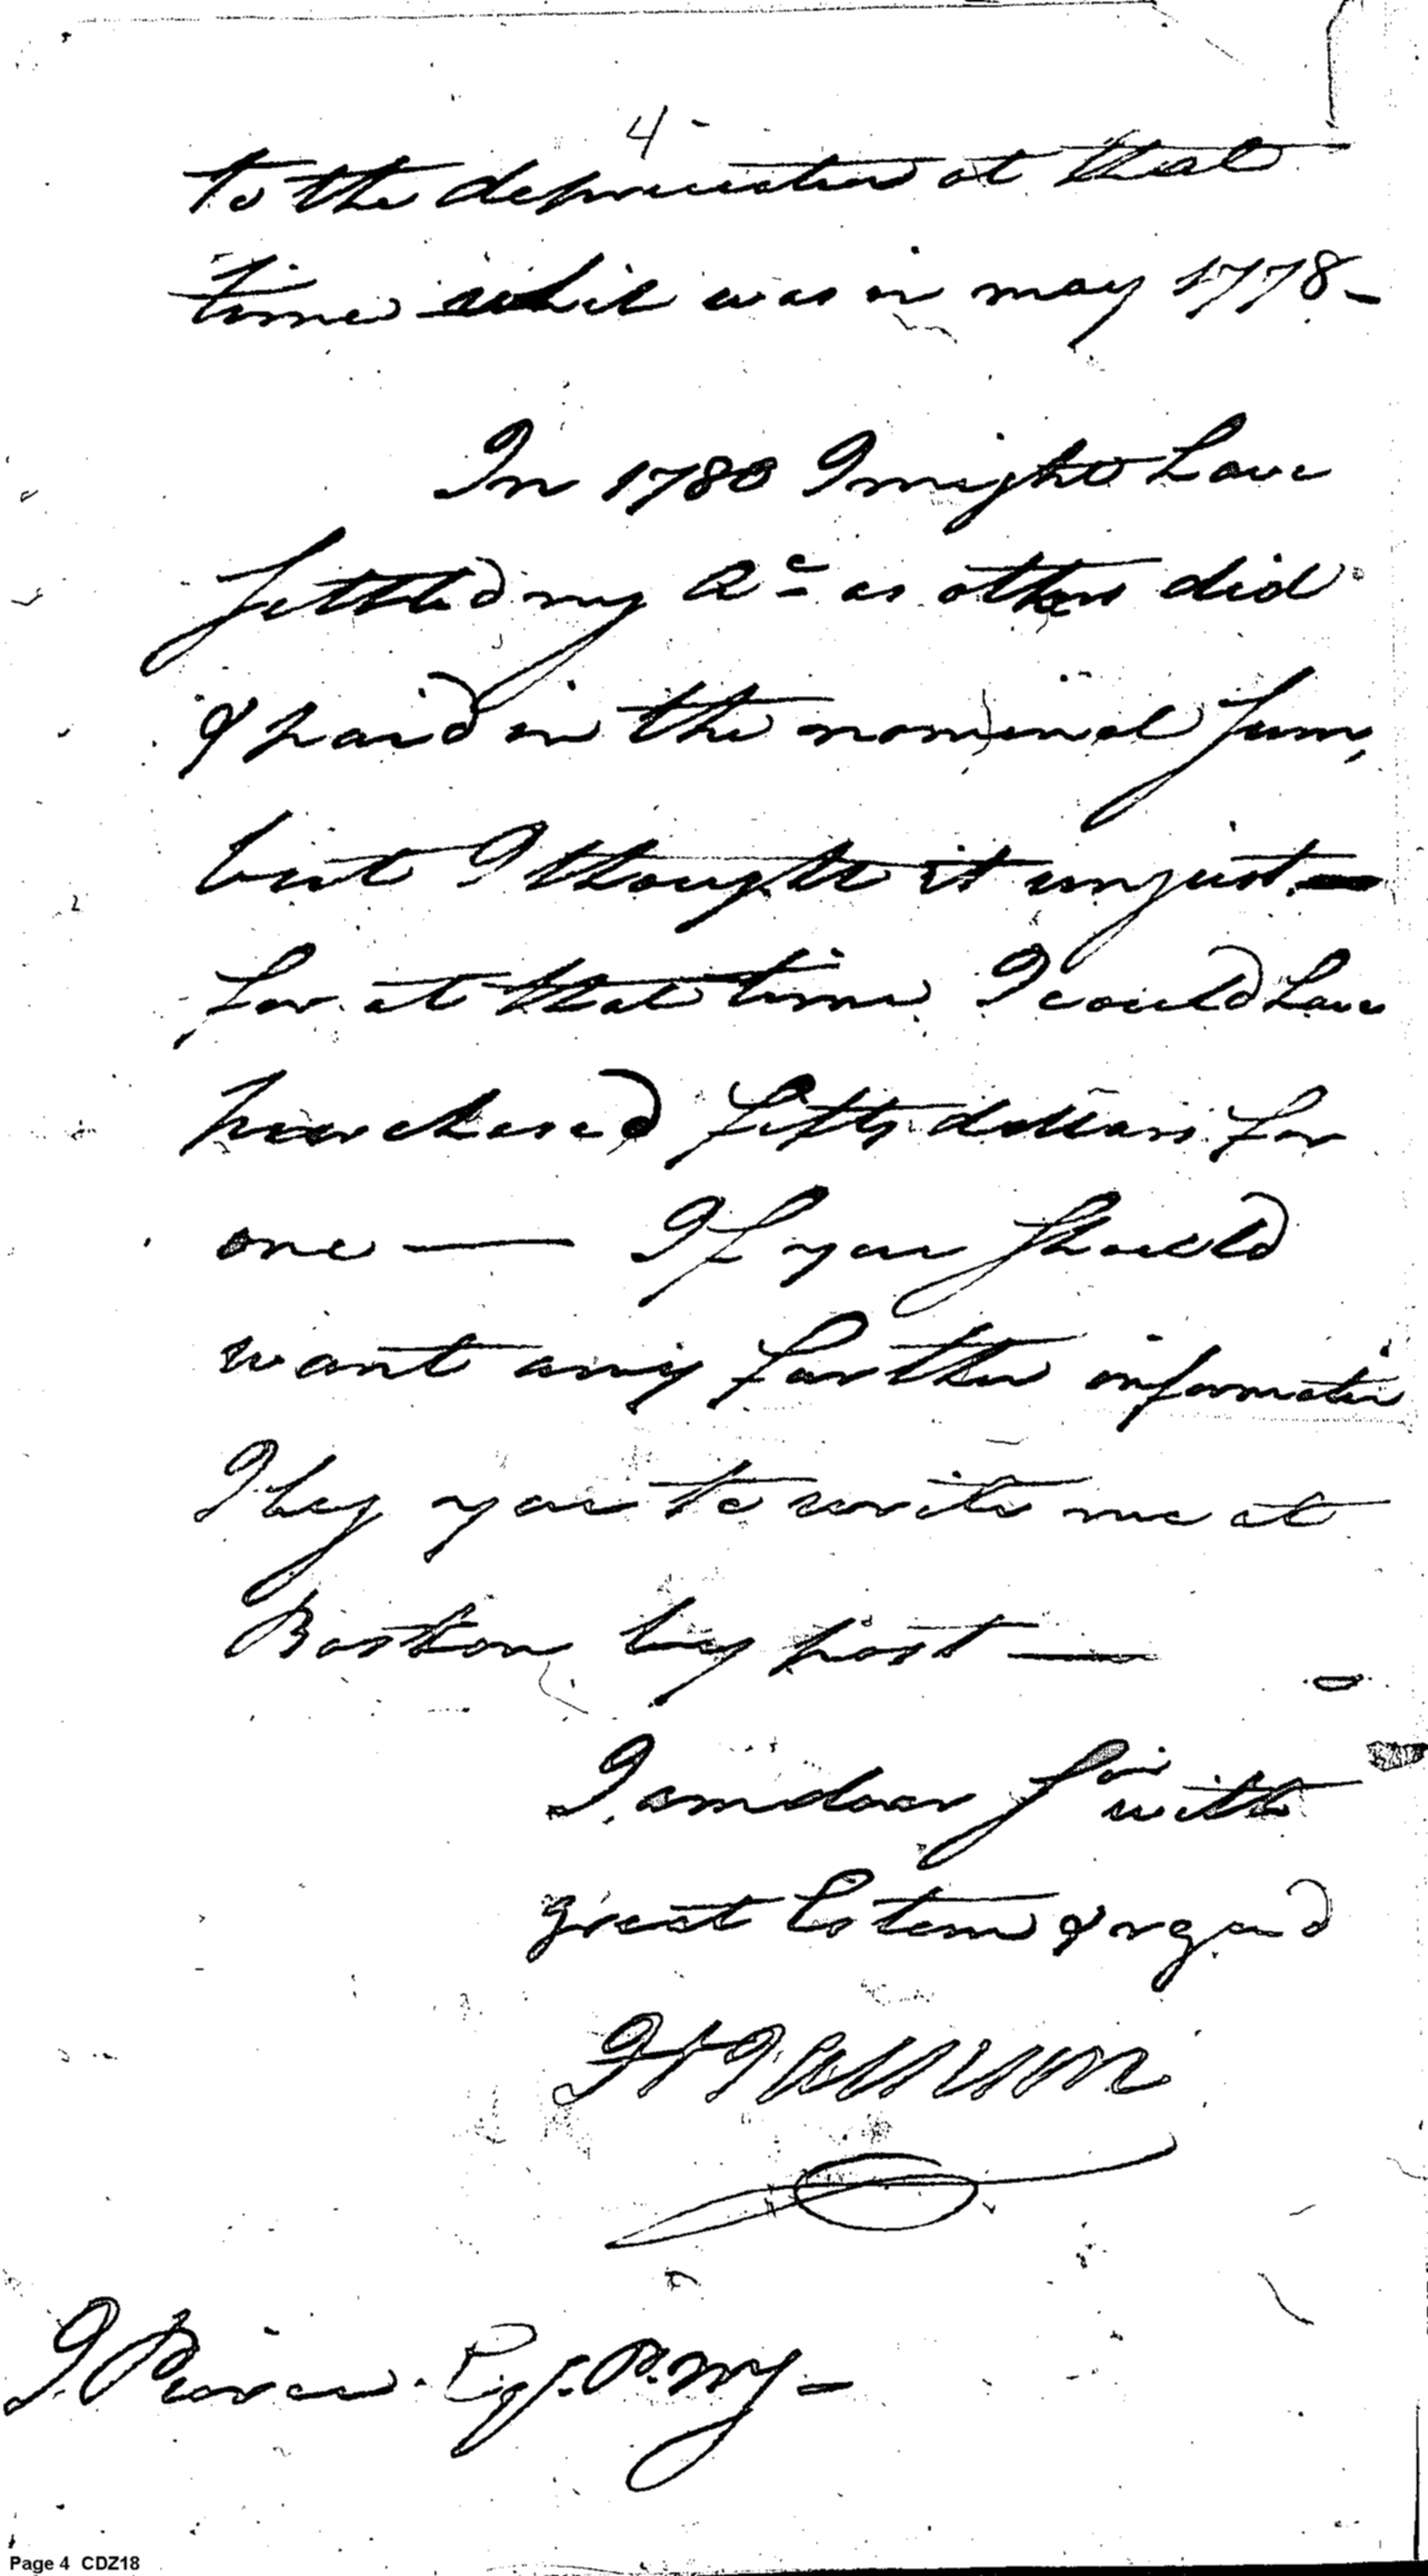 4-
to the depreciation at that
time which was in may 1778-
In 1780 I might have
settled my Ac as others did
& paid in the nominal sum,
but I thought it unjust -
for at that time I could have
purchased fifty dollars for
one — If you should
want any farther information
I beg you to write me at
Boston by post —
I am dear Sir with
great Esteem & regard
J Pierce Esq. P. M G -
Page 4 CDZ18